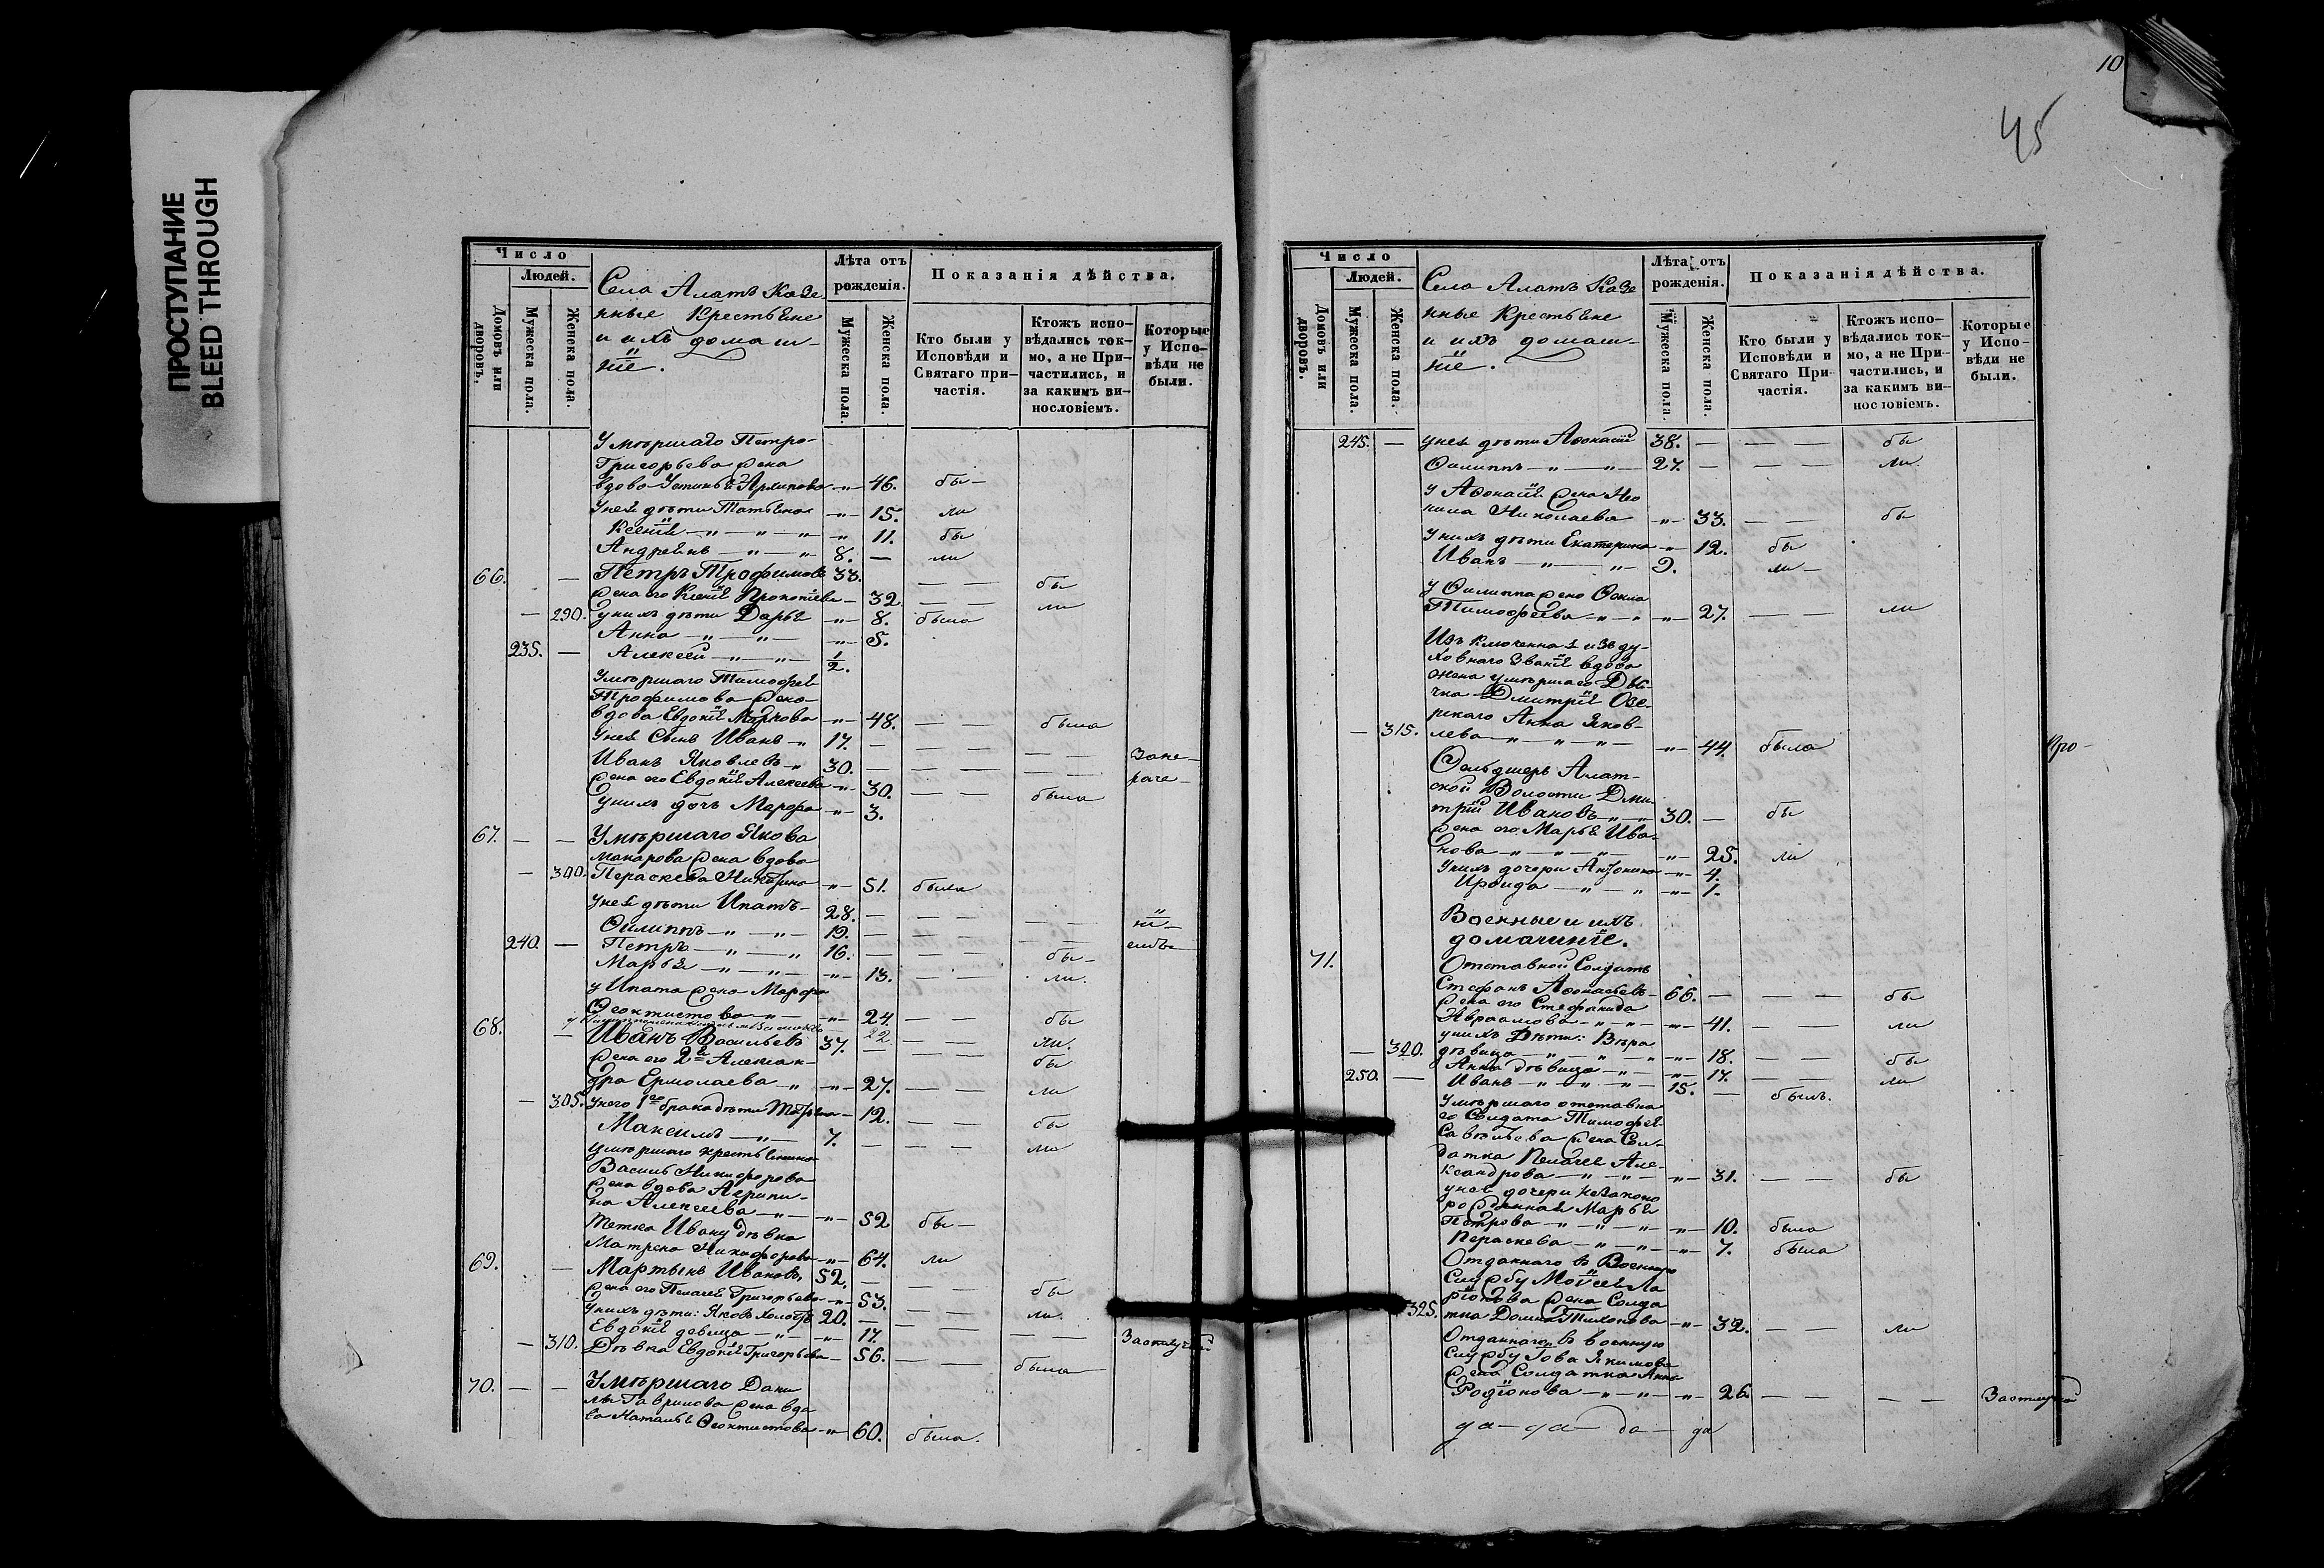 ПРОСТУПАНИЕ
BLEED THROUGH
Число
Людей.
Домовъ или дворовъ.
Мужеска пола.
Женска пола.
Села Алатъ Казе
нные Крестьяне
и ихъ домаш-
ніе.
Лѣта отъ рожденія.
Мужеска пола.
Женска пола.
Показанія дѣйства.
Кто были у Исповѣди и Святаго причастія.
Ктожъ исповѣдались токмо, а не Причастились, и за какимъ винословіемъ.
Которые у Исповѣди не были.
Умѣршаго Петра
Григорьева жена
вдова Устинья Архипова -"- 46. бы-
У нея дѣти Татьяна -"- 15. ли
Ксенія -"- " -"- " 11. бы
Андреянъ -"- " 8. — ли
66. — Петръ Трофимовъ 33. — — бы
жена его Ксенія Прокопіева - 32 — — ли
— 290. У нихъ дѣти Дарья -"- 8. была
Анна -"- -"- -"- 5.
235. — Алексѣй -"- -"- 1/2.
Умѣршаго Тимофея
Трофимова жена
вдова Евдокія Маркова -"- 48. — — была
У нея Сынъ Иванъ -"- 17. — — — —
Иванъ Яковлевъ " 30. — — — — Запе-
жена его Евдокія Алексеева -"- 30. — — была раче-
У нихъ дочь Марфа -"- 3.
67. — — Умѣршаго Якова
Макарова жена вдова
— 300. Пераскева Никитина -"- 51. была
У нея дѣти Ипатъ - 28. — — — — ні-
Филиппъ -"- -"- 19. — — — — емъ
240. — Петръ -"- -"- 16. — — — бы-
Марья -"- -"- -"- 13. — — ли.
у Ипата жена Марфа
Феоктистова -"- -"- 24. — бы
22 ли.
68. — Иванъ Васильевъ 37. — бы
Жена его 2я Алексан-
дра Ермолаева -"- -"- 27. — — ли
— 305. У него 1го брака дѣти Татьяна - 12. — — бы
Максимъ -"- 7. — — — ли
Умѣршаго крестьянина
Василья Никифорова
жена вдова Агрипи-
на Алексеева -"- -"- 52 бы-
Тетка Ивану дѣвка
Матрена Никифорова -"- 64. ли
69. — Мартынъ Ивановъ 52. — — — бы
жена его Пелагея Григорьева -"- 53. — — ли.
У нихъ дѣти: Яковъ холостъ 20. — — — —
Евдокія девица -"- -"- 17. — — — — Заотлучкой
— 310. Дѣвка Евдокія Григорьева - 56. — — была
70. — — Умѣршаго Дани
лы Гаврилова жена вдо
ва Наталья Феоктистова -"- 60. была.
10
45
Число
Людей.
Домовъ или дворовъ.
Мужеска пола.
Женска пола.
Села Алатъ Казе
нные Крестьяне
и ихъ домаш-
ніе.
Лѣта отъ рожденія.
Мужеска пола.
Женска пола.
Показанія дѣйства.
Кто были у Исповѣди и Святаго Причастія.
Ктожъ исповѣдались токмо, а не Причастились, и за какимъ винословіемъ.
Которые у Исповѣди не были.
245. — У нея дѣти Афонасій 38. — — — бы
Филиппъ -"- -"- 27. — — — ли.
у Афонасія жена Нео
нила Николаева -"- 33. — — бы
У нихъ дѣти Екатерина -"- 12. бы
Иванъ -"- -"- 9. ли-
у Филиппа жена Фекла
Тимофеева -"- " -"- 27. — — ли
Изъ ключенная изъ ду-
ховнаго званія вдова
жена умѣршаго Дья-
чка Дмитрія Озе-
рскаго Анна Яков-
— 315. лева -"- " -"- -"- 44. была
Про-
Фельдшеръ Алат-
ской Волости Дми-
трій Ивановъ -"- 30. — бы
жена его Марья Ива-
нова -"- -"- -"- 25. ли
У нихъ дочери Антонина -"- 4.
Ираида -"- " -"- 1.
Военные и ихъ
домашніе.
71. Отставной Солдатъ
Стефанъ Афонасьевъ - 66. — — — бы
Жена его Стефанида
Авраамова -"- -"- -"- 41. — — ли
у нихъ Дѣти: Вѣра
— 320. дѣвица -"- " -"- 18. — — бы
Анна дѣвица -"- -"- 17. — — ли
250. — Иванъ -"- -"- 15. — былъ.
Умѣршаго отставна
го Солдата Тимофея
Савельева жена Сол-
датка Пелагея Але-
ксандрова -"- -"- -"- 31. — — бы
у нея дочери незаконо
рожденная Марья
Петрова -"- " -"- -"- 10. была
Пераскева -"- " -"- 7. была
Отданнаго в Военную
службу Моѵсея Ла
ріонова жена Солда
325. тка Домна Тихонова -"- 32. — — ли
Отданнаго в военную
службу Іова Якимова
жена Солдатка Анна
Родіонова -"- -"- -"- 26. — — — — Заотлучкой
да- да- да- да